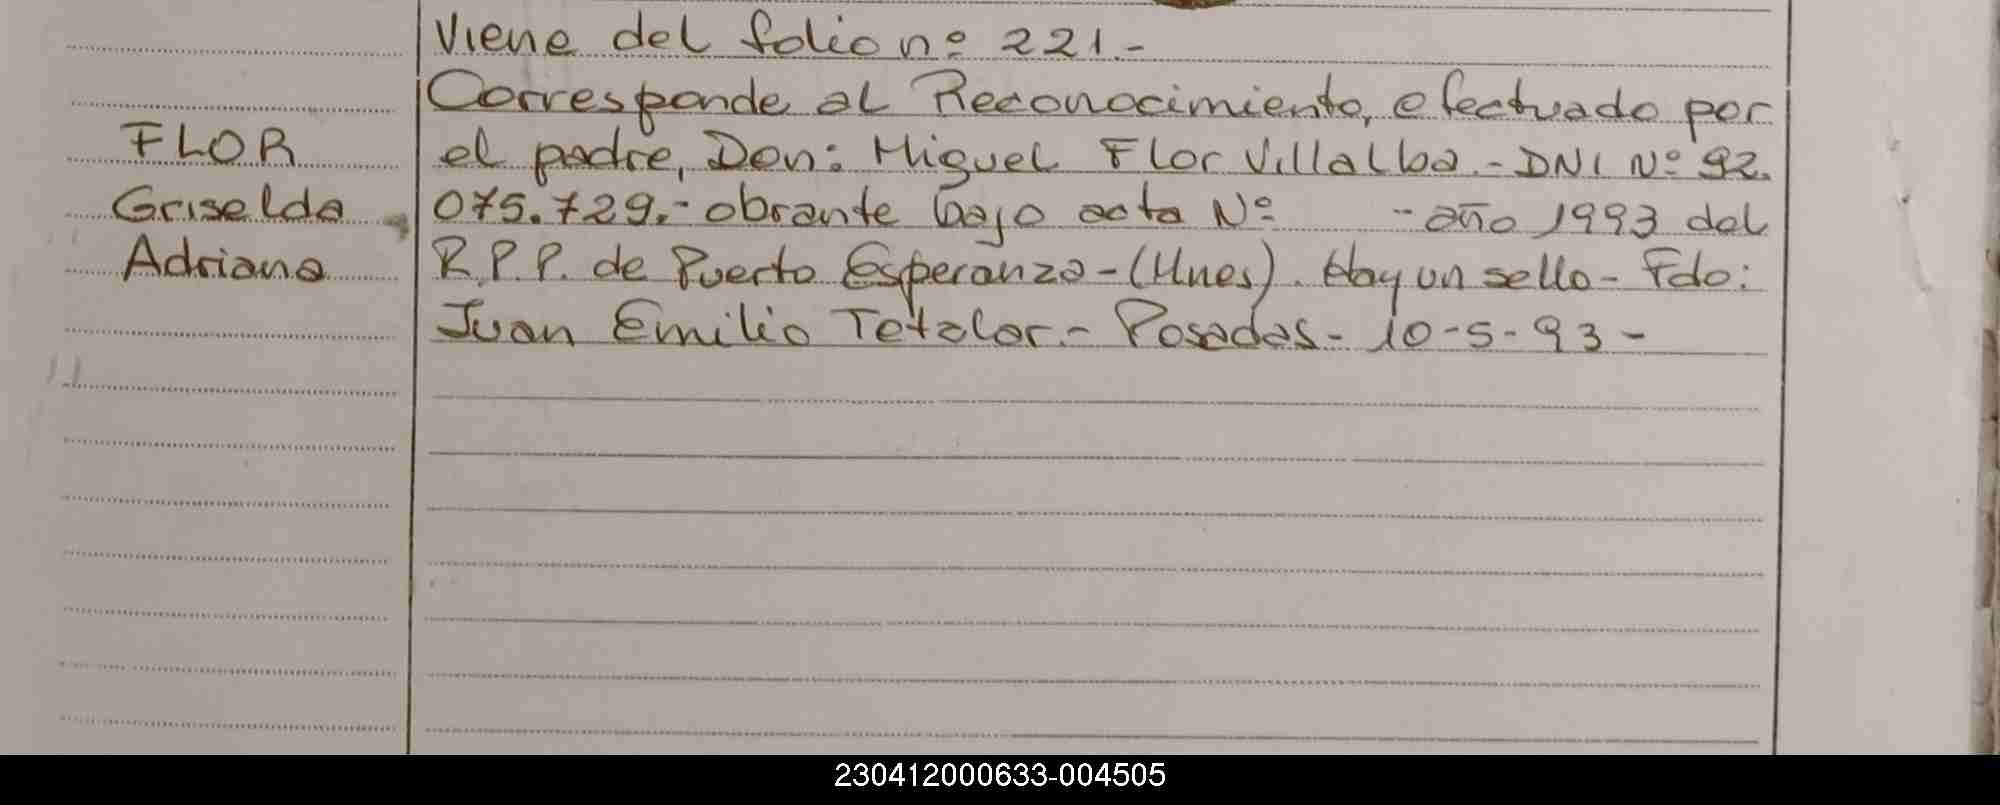 Viene del folio nº 221.-
Corresponde al Reconocimiento, efectuado por
FLOR
el padre, Don: Miguel Flor Villalba.- DNI Nº 92.
Griselda
075.729.- obrante bajo acta Nº - año 1993 del
Adriana
R.P.P. de Puerto Esperanza-(Mnes). Hay un sello- Fdo:
Juan Emilio Tetzlor.- Posadas- 10-5-93-
230412000633-004505